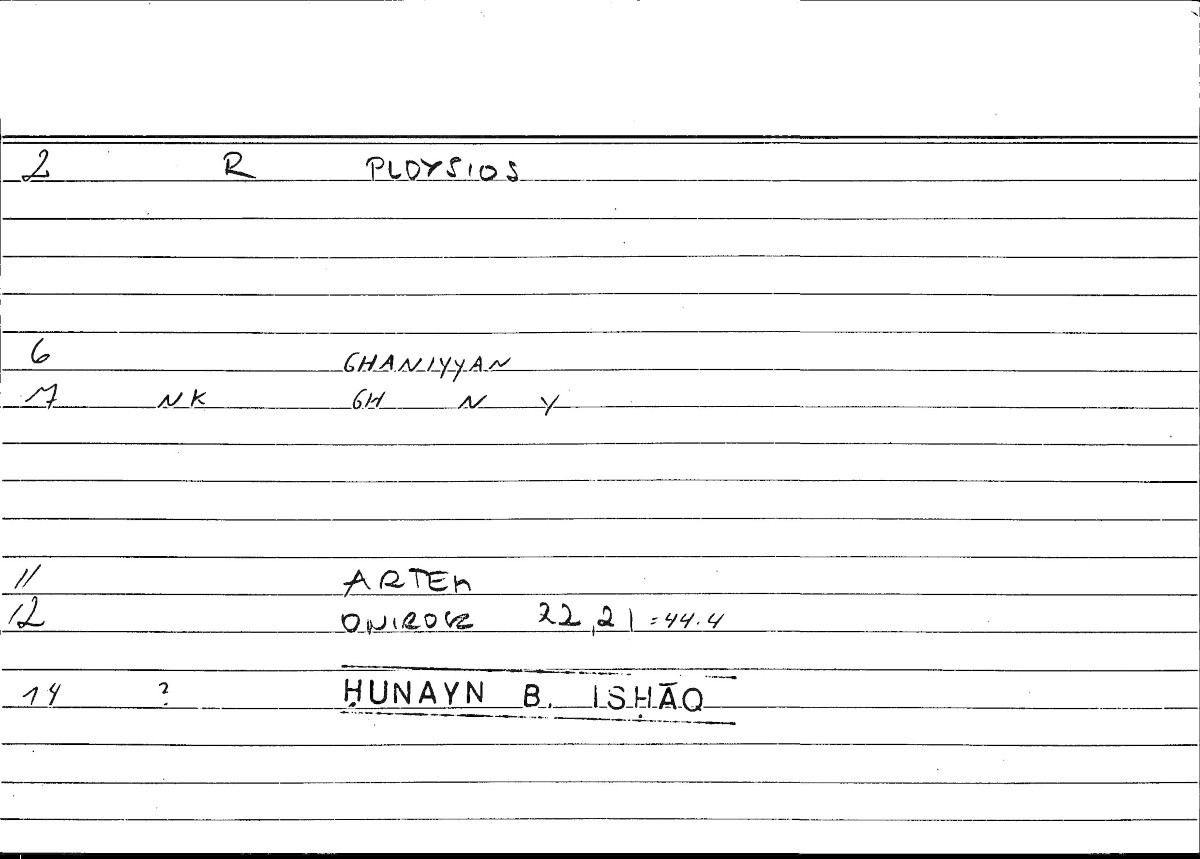 2 R PLOYSIOS
6 GHANIYYAN
7 NK GH N Y
11 ARTEM
12 ONIROCR 22,21 = 44.4
14 ? ḤUNAYN B. ISḤĀQ